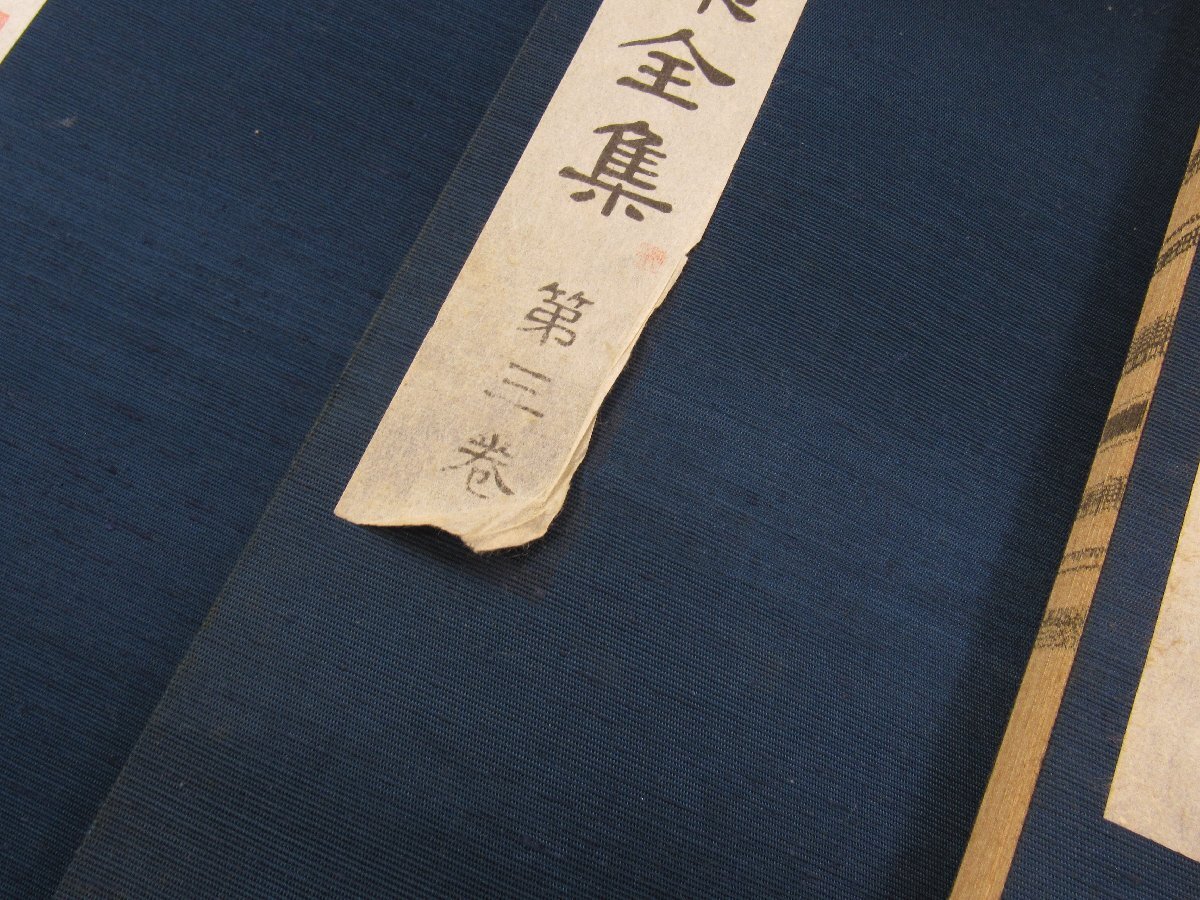 全集
第三卷